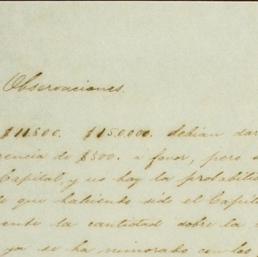 Observaciones.
$11500. $150.000. debian dar
rencia de $500. a favor, pero
Capital, y no hay la probabilid
que habiendo sido el Capit
ente la cantidad sobre la
ya se ha minorado con los